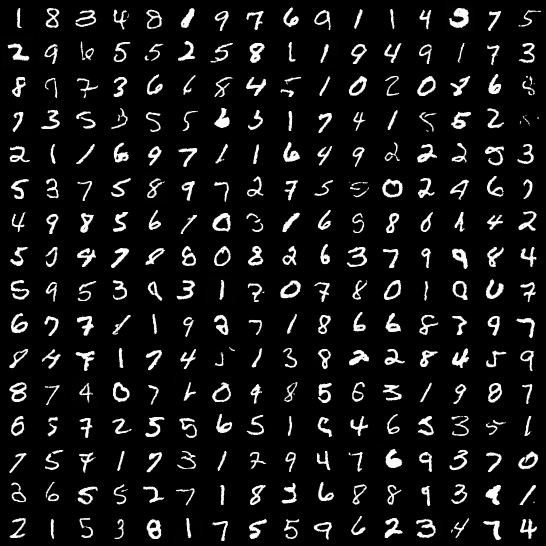 1 8 3 4 8 1 9 7 6 9 1 1 4 3 7 5
2 9 6 5 5 2 5 8 1 1 9 4 9 1 7 3
8 9 7 3 6 6 8 4 5 1 0 2 0 8 6 8
7 3 5 3 5 5 6 3 1 7 4 1 5 5 2
2 1 1 6 9 7 1 1 6 4 9 2 2 2 5 3
5 3 7 5 8 9 7 2 7 5 5 0 2 4 6 7
4 9 8 5 6 1 0 3 1 6 9 8 6 1 4 2
5 9 7 8 8 0 8 2 6 3 7 9 9 8 4
5 9 5 3 9 3 1 2 0 7 8 0 1 0 0 7
6 7 7 1 1 9 2 7 1 8 6 6 8 3 9 7
8 4 7 1 7 4 5 1 3 8 2 2 8 4 5 9
8 7 4 0 7 6 0 9 8 5 6 3 1 9 8 7
6 5 7 2 5 5 6 5 1 9 4 6 3 3 5 1
7 5 7 1 7 3 1 7 9 4 7 6 9 3 7 0
3 6 5 5 2 7 1 8 3 6 8 8 9 3 1
2 1 5 3 8 1 7 5 5 9 6 2 3 4 7 4